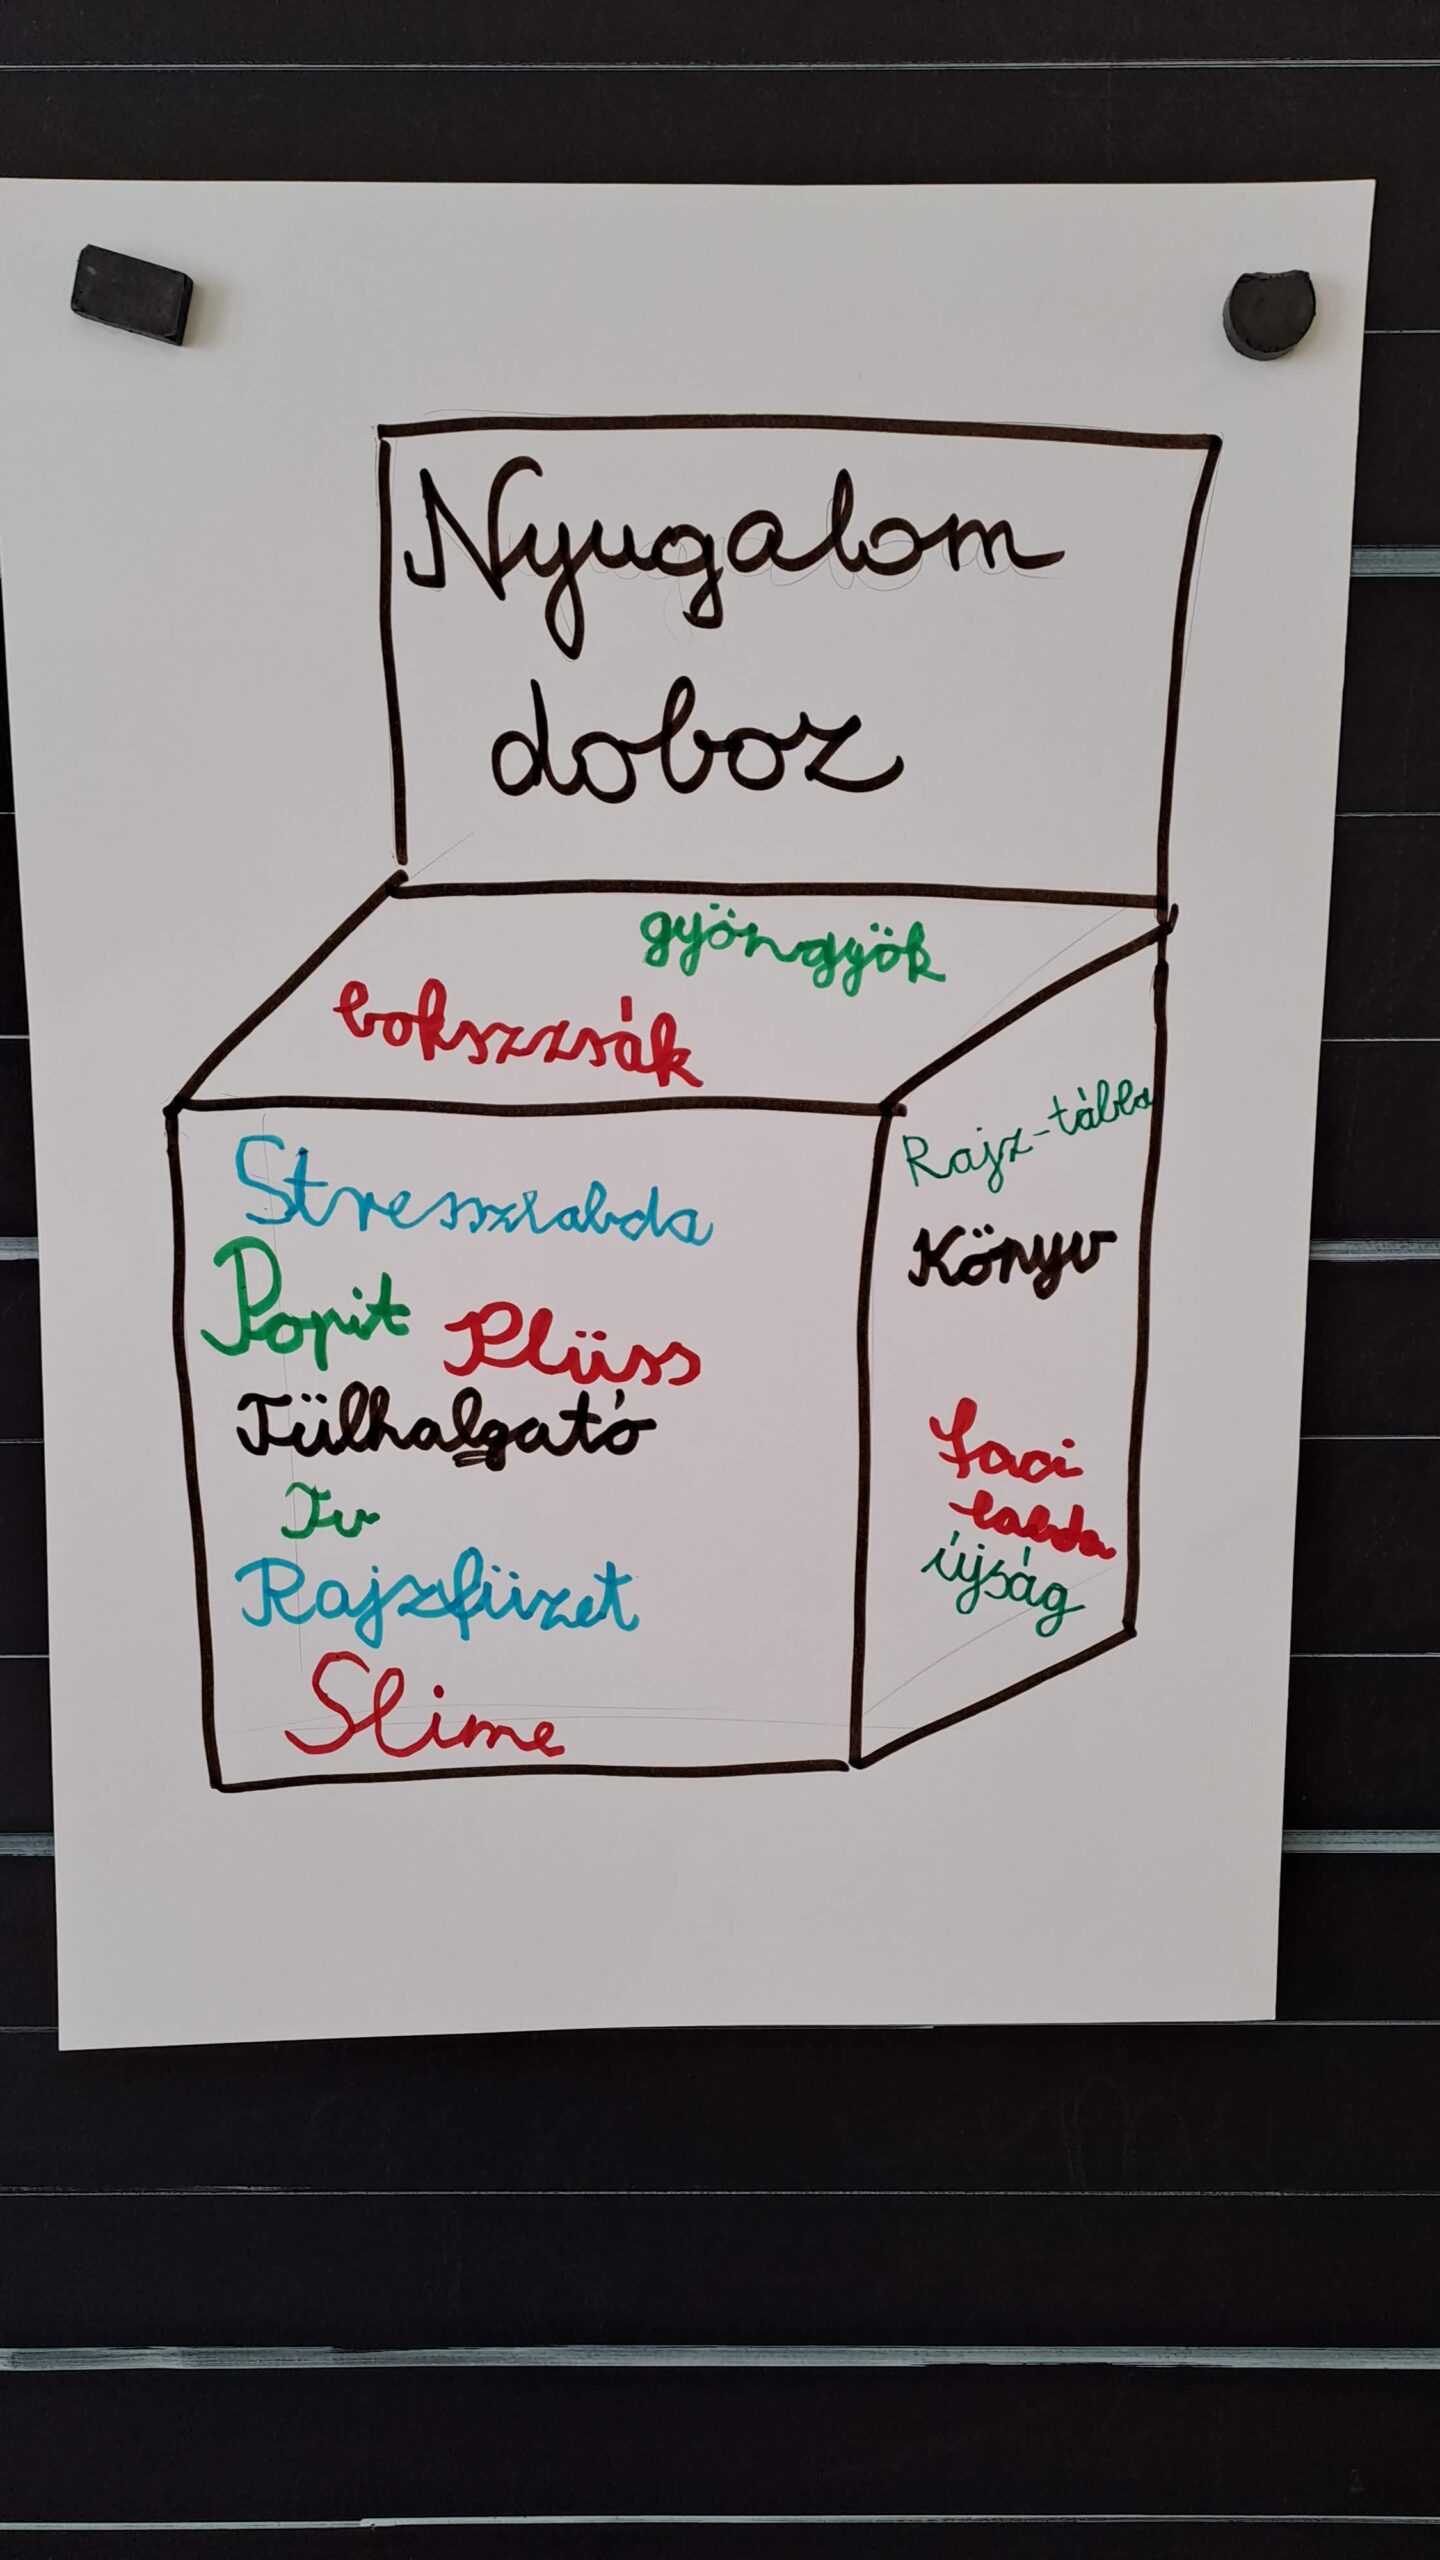 Nyugalom
doboz
gyöngyök
bokszzsák
Stresszlabda
Popit Plüss
Fülhalgató
Tv
Rajzfüzet
Slime
Rajz-tábla
Könyv
foci
labda
újság